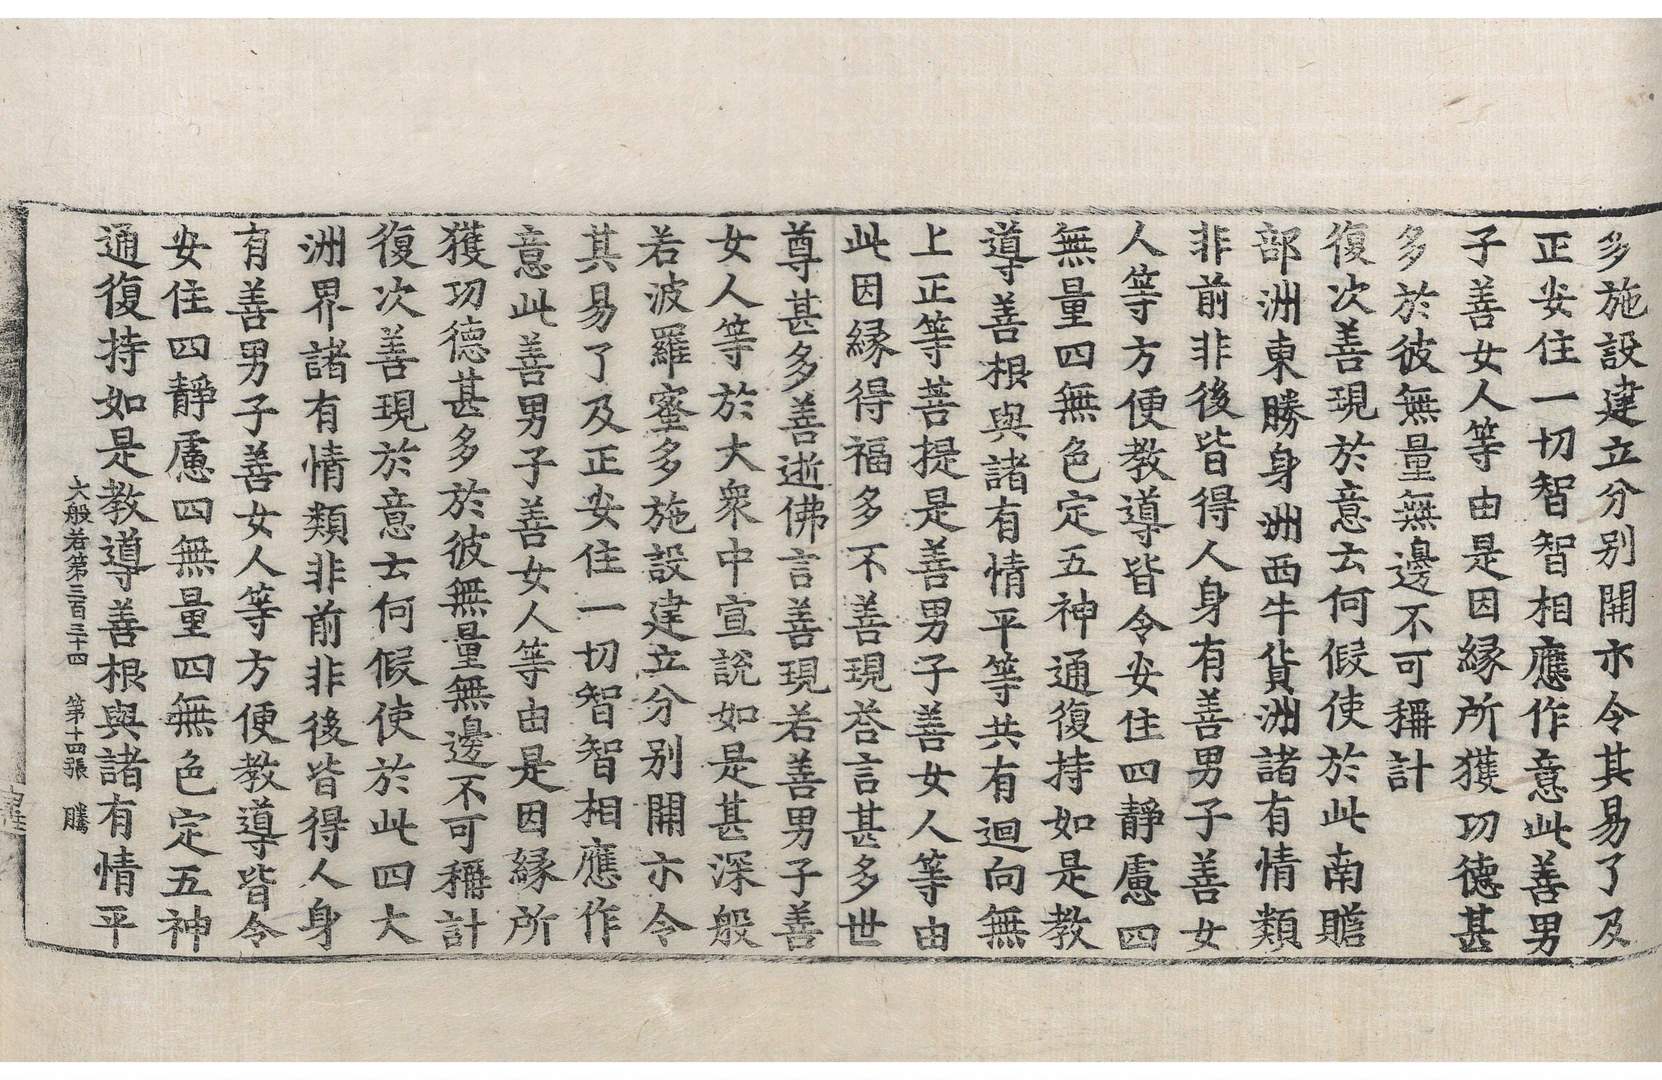 多施設建立分別開示令其易了及
正安住一切智智相應作意此善男
子善女人等由是因緣所獲功德甚
多於彼無量無邊不可稱計
復次善現於意云何假使於此南贍
部洲東勝身洲西牛貨洲諸有情類
非前非後皆得人身有善男子善女
人等方便教導皆令安住四靜慮四
無量四無色定五神通復持如是教
導善根與諸有情平等共有迴向無
上正等菩提是善男子善女人等由
此因緣得福多不善現荅言甚多世
尊甚多善逝佛言善現若善男子善
女人等於大衆中宣說如是甚深般
若波羅蜜多施設建立分別開示令
其易了及正安住一切智智相應作
意此善男子善女人等由是因緣所
獲功德甚多於彼無量無邊不可稱計
復次善現於意云何假使於此四大
洲界諸有情類非前非後皆得人身
有善男子善女人等方便教導皆令
安住四靜慮四無量四無色定五神
通復持如是教導善根與諸有情平
大般若第三百三十四 第十四張 騰